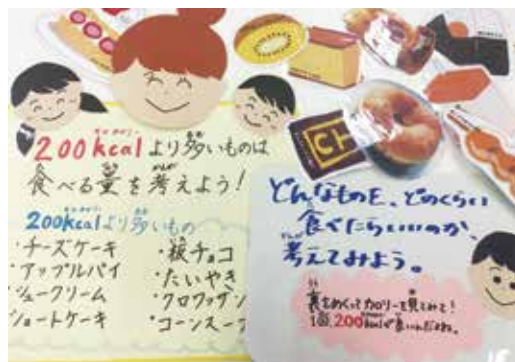 200kcalより多いものは
食べる量を考えよう!
200kcalより多いもの
・チーズケーキ
・アップルパイ
シュークリーム
ショートケーキ
・板チョコ
・たいやき
・クロワッサン
・コーンスープ
どんなものを、どのくらい
食べたらいいのか、
考えてみよう。
裏をめくってカロリーを見てみて!
1日、200kcalが良いんだよね。